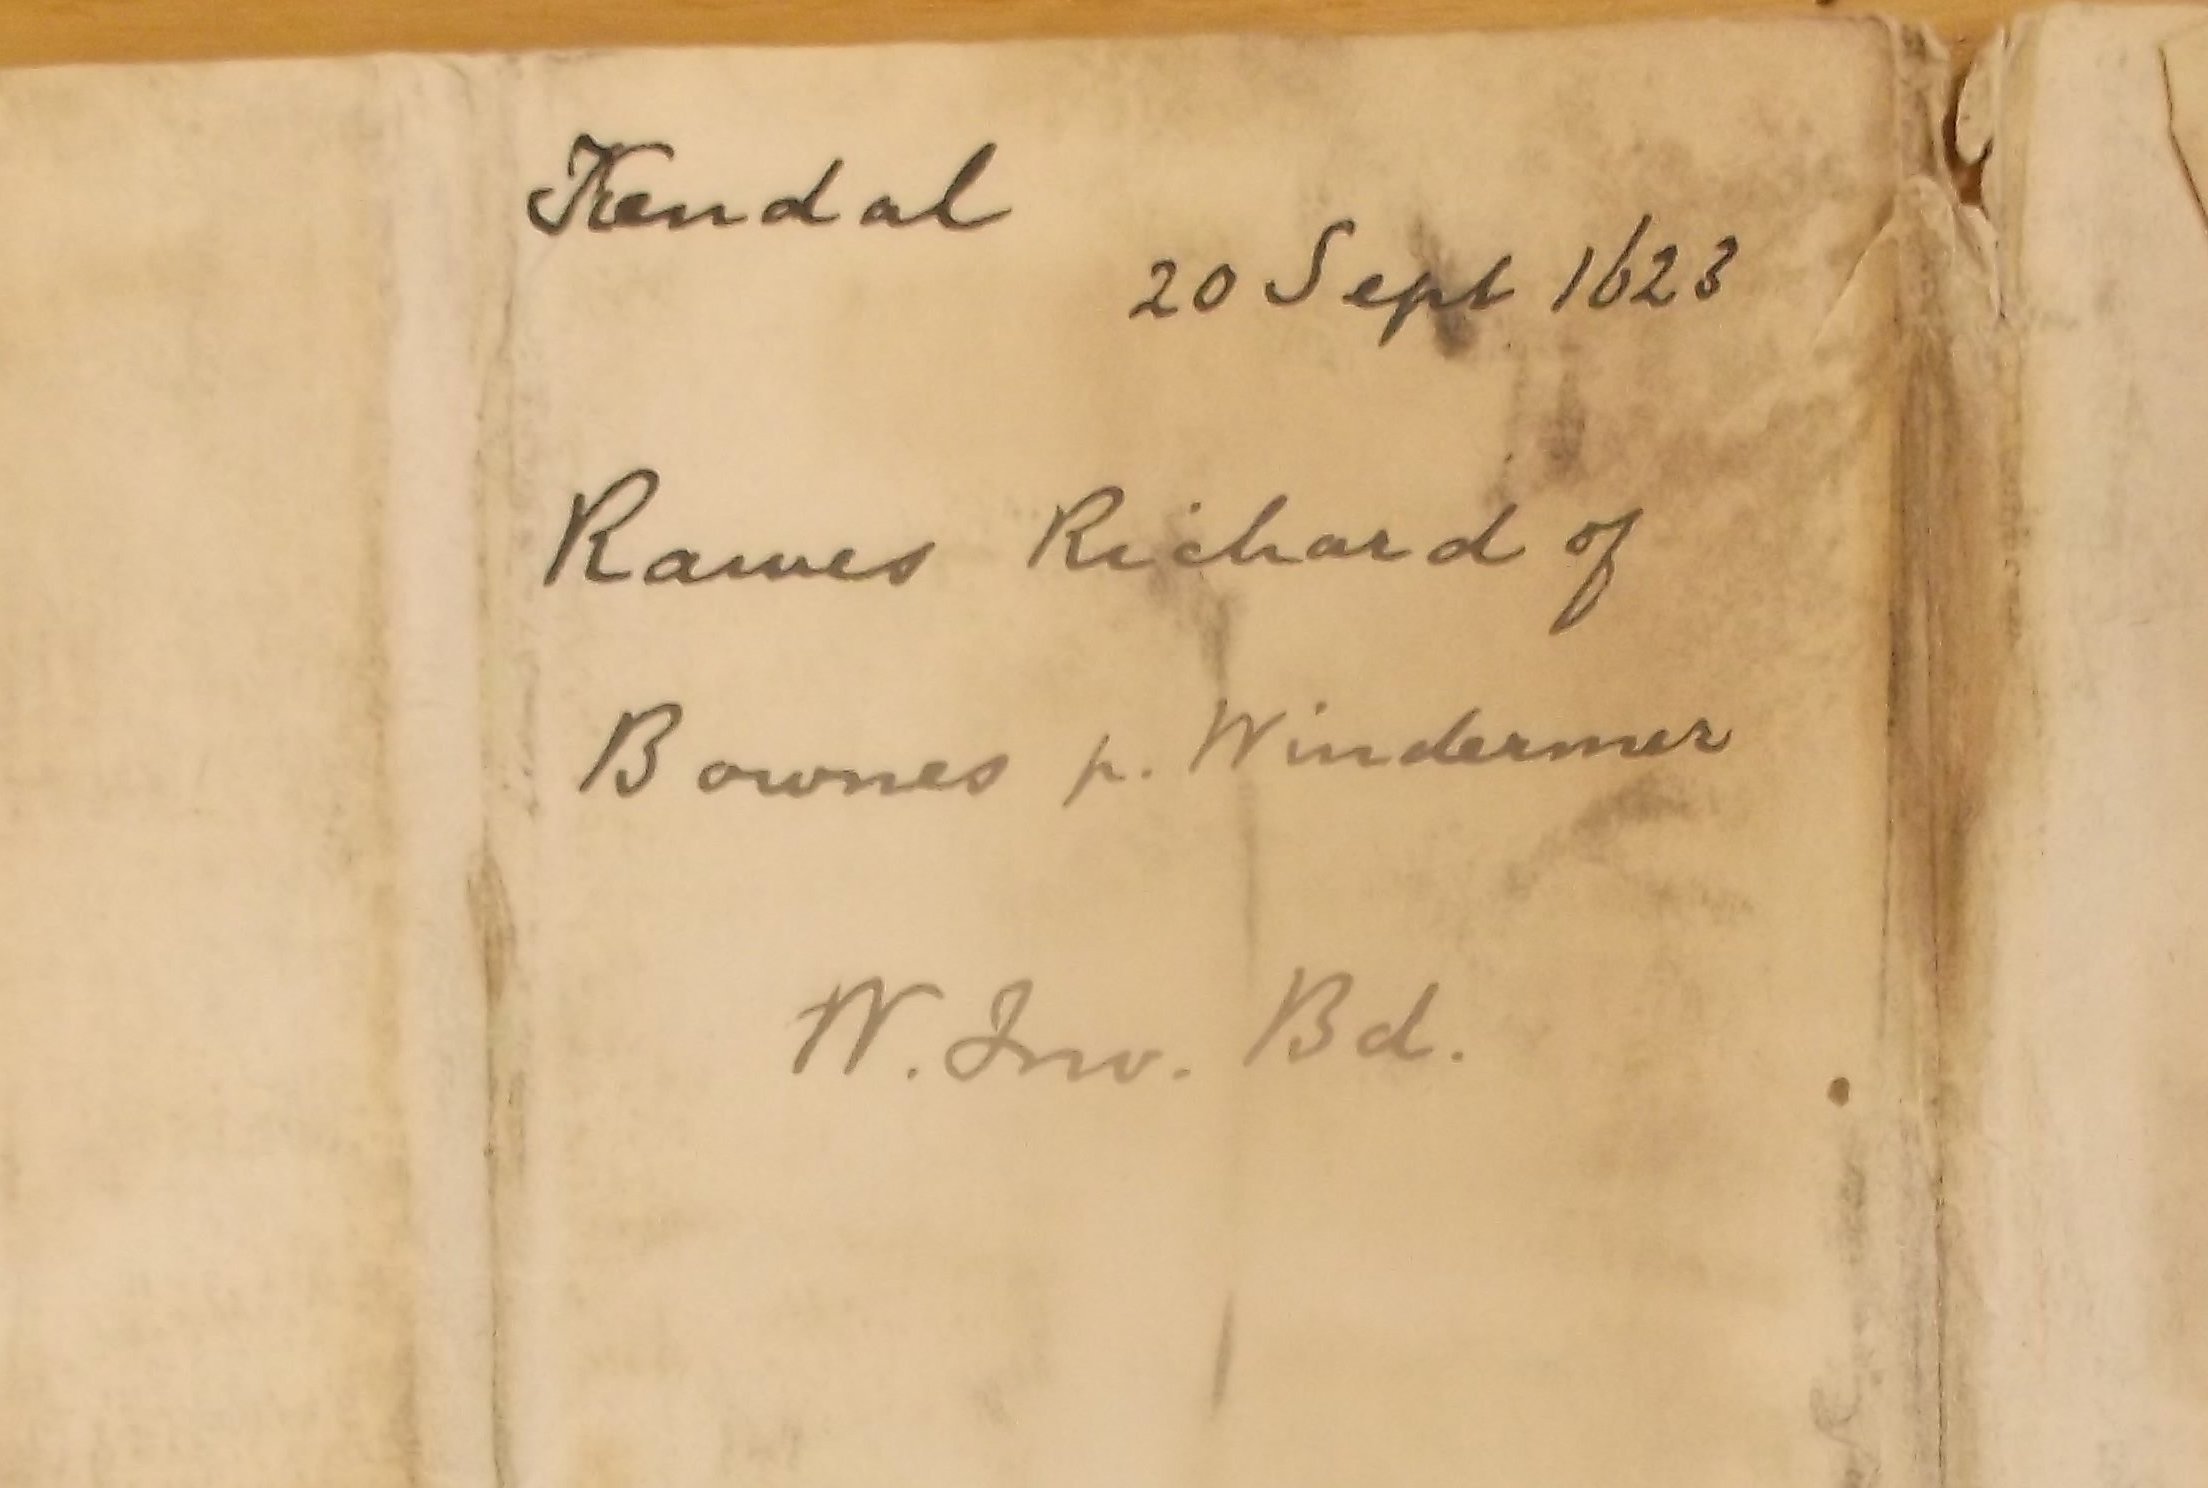 Kendal
20 Sept 1623
Rawes Richard of
Bownes p. Windermer
W. Inv. Bd.